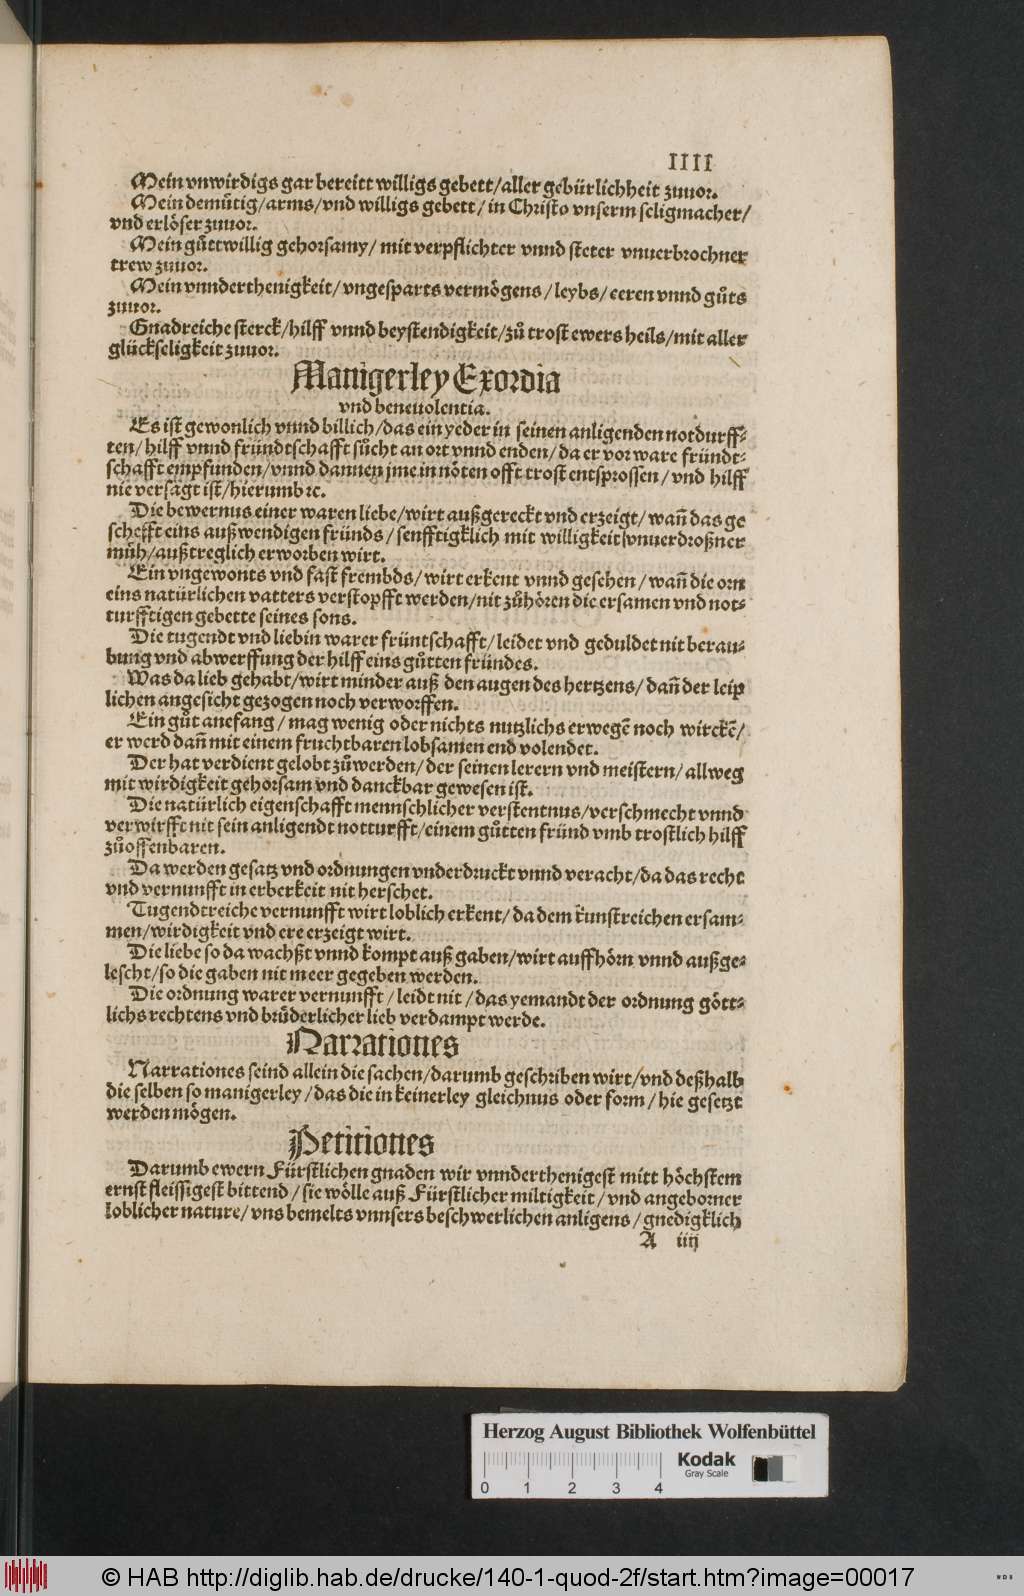 IIII
Mein vnwirdigs gar bereitt willigs gebett/aller gebürlichheit zuuor.
Mein demütig/arms/vnd willigs gebett/in Christo vnserm seligmacher/
vnd erlöser zuuor.
Mein gůttwillig gehorsamy/mit verpflichter vnnd steter vnuerbrochner
trew zuuor.
Mein vnnderthenigkeit/vngesparts vermögens/leybs/eeren vnnd gůts
zuuor.
Gnadreiche sterck/hilff vnnd beystendigkeit/zů trost ewers heils/mit aller
glückseligkeit zuuor.
Manigerley Exordia
vnd beneuolentia.
Es ist gewonlich vnnd billich/das ein yeder in seinen anligenden notdurff-
ten/hilff vnnd fründtschafft sůcht an ort vnnd enden/da er vor ware fründt-
schafft empfunden/vnnd dannen jme in nöten offt trost entsprossen/vnd hilff
nie versagt ist/hierumb ꝛc.
Die bewernus einer waren liebe/wirt außgereckt vnd erzeigt/wañ das ge
schefft eins außwendigen fründs/senfftigklich mit willigkeit/vnuerdroßner
müh/außtreglich erworben wirt.
Ein vngewonts vnd fast frembds/wirt erkent vnnd gesehen/wañ die orn
eins natürlichen vatters verstopfft werden/nit zůhören die ersamen vnd not-
turfftigen gebette seines sons.
Die tugendt vnd liebin warer früntschafft/leidet vnd geduldet nit berau-
bung vnd abwerffung der hilff eins gůtten fründes.
Was da lieb gehabt/wirt minder auß den augen des hertzens/dañ der leip
lichen angesicht gezogen noch verworffen.
Ein gůt anefang/mag wenig oder nichts nutzlichs erwegẽ noch wirckẽ/
er werd dañ mit einem fruchtbaren lobsamen end volendet.
Der hat verdient gelobt zůwerden/der seinen lerern vnd meistern/allweg
mit wirdigkeit gehorsam vnd danckbar gewesen ist.
Die natürlich eigenschafft mennschlicher verstentnus/verschmecht vnnd
verwirfft nit sein anligendt notturfft/einem gůtten fründ vmb trostlich hilff
zůoffenbaren.
Da werden gesatz vnd ordnungen vnderdruckt vnnd veracht/da das recht
vnd vernunfft in erberkeit nit herschet.
Tugendtreiche vernunfft wirt loblich erkent/da dem kunstreichen ersam-
men/wirdigkeit vnd ere erzeigt wirt.
Die liebe so da wachßt vnnd kompt auß gaben/wirt auffhörn vnnd außge-
lescht/so die gaben nit meer gegeben werden.
Die ordnung warer vernunfft/leidt nit/das yemandt der ordnung gött-
lichs rechtens vnd brůderlicher lieb verdampt werde.
Narrationes
Narrationes seind allein die sachen/darumb geschriben wirt/vnd deßhalb
die selben so manigerley/das die in keinerley gleichnus oder form/hie gesetzt
werden mögen.
Petitiones
Darumb ewern Fürstlichen gnaden wir vnnderthenigest mitt höchstem
ernst fleissigest bittend/sie wölle auß Fürstlicher miltigkeit/vnd angeborner
loblicher nature/vns bemelts vnnsers beschwerlichen anligens/gnedigklich
A iiij
Herzog August Bibliothek Wolfenbüttel
Kodak
Gray Scale
0 1 2 3 4
© HAB http://diglib.hab.de/drucke/140-1-quod-2f/start.htm?image=00017